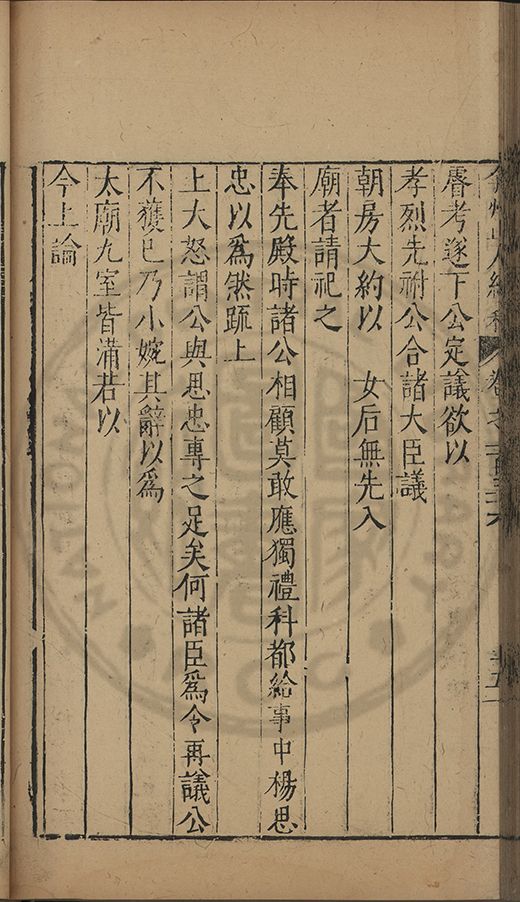 睿考遂下公定議欲以
孝烈先祔公合諸大臣議
朝房大約以　女后無先入
廟者請祀之
奉先殿時諸公相顧莫敢應獨禮科都給事中楊思
忠以爲然疏上
上大怒謂公與思忠專之足矣何諸臣爲令再議公
不獲已乃小婉其辭以爲
太廟九室皆滿若以
今上論